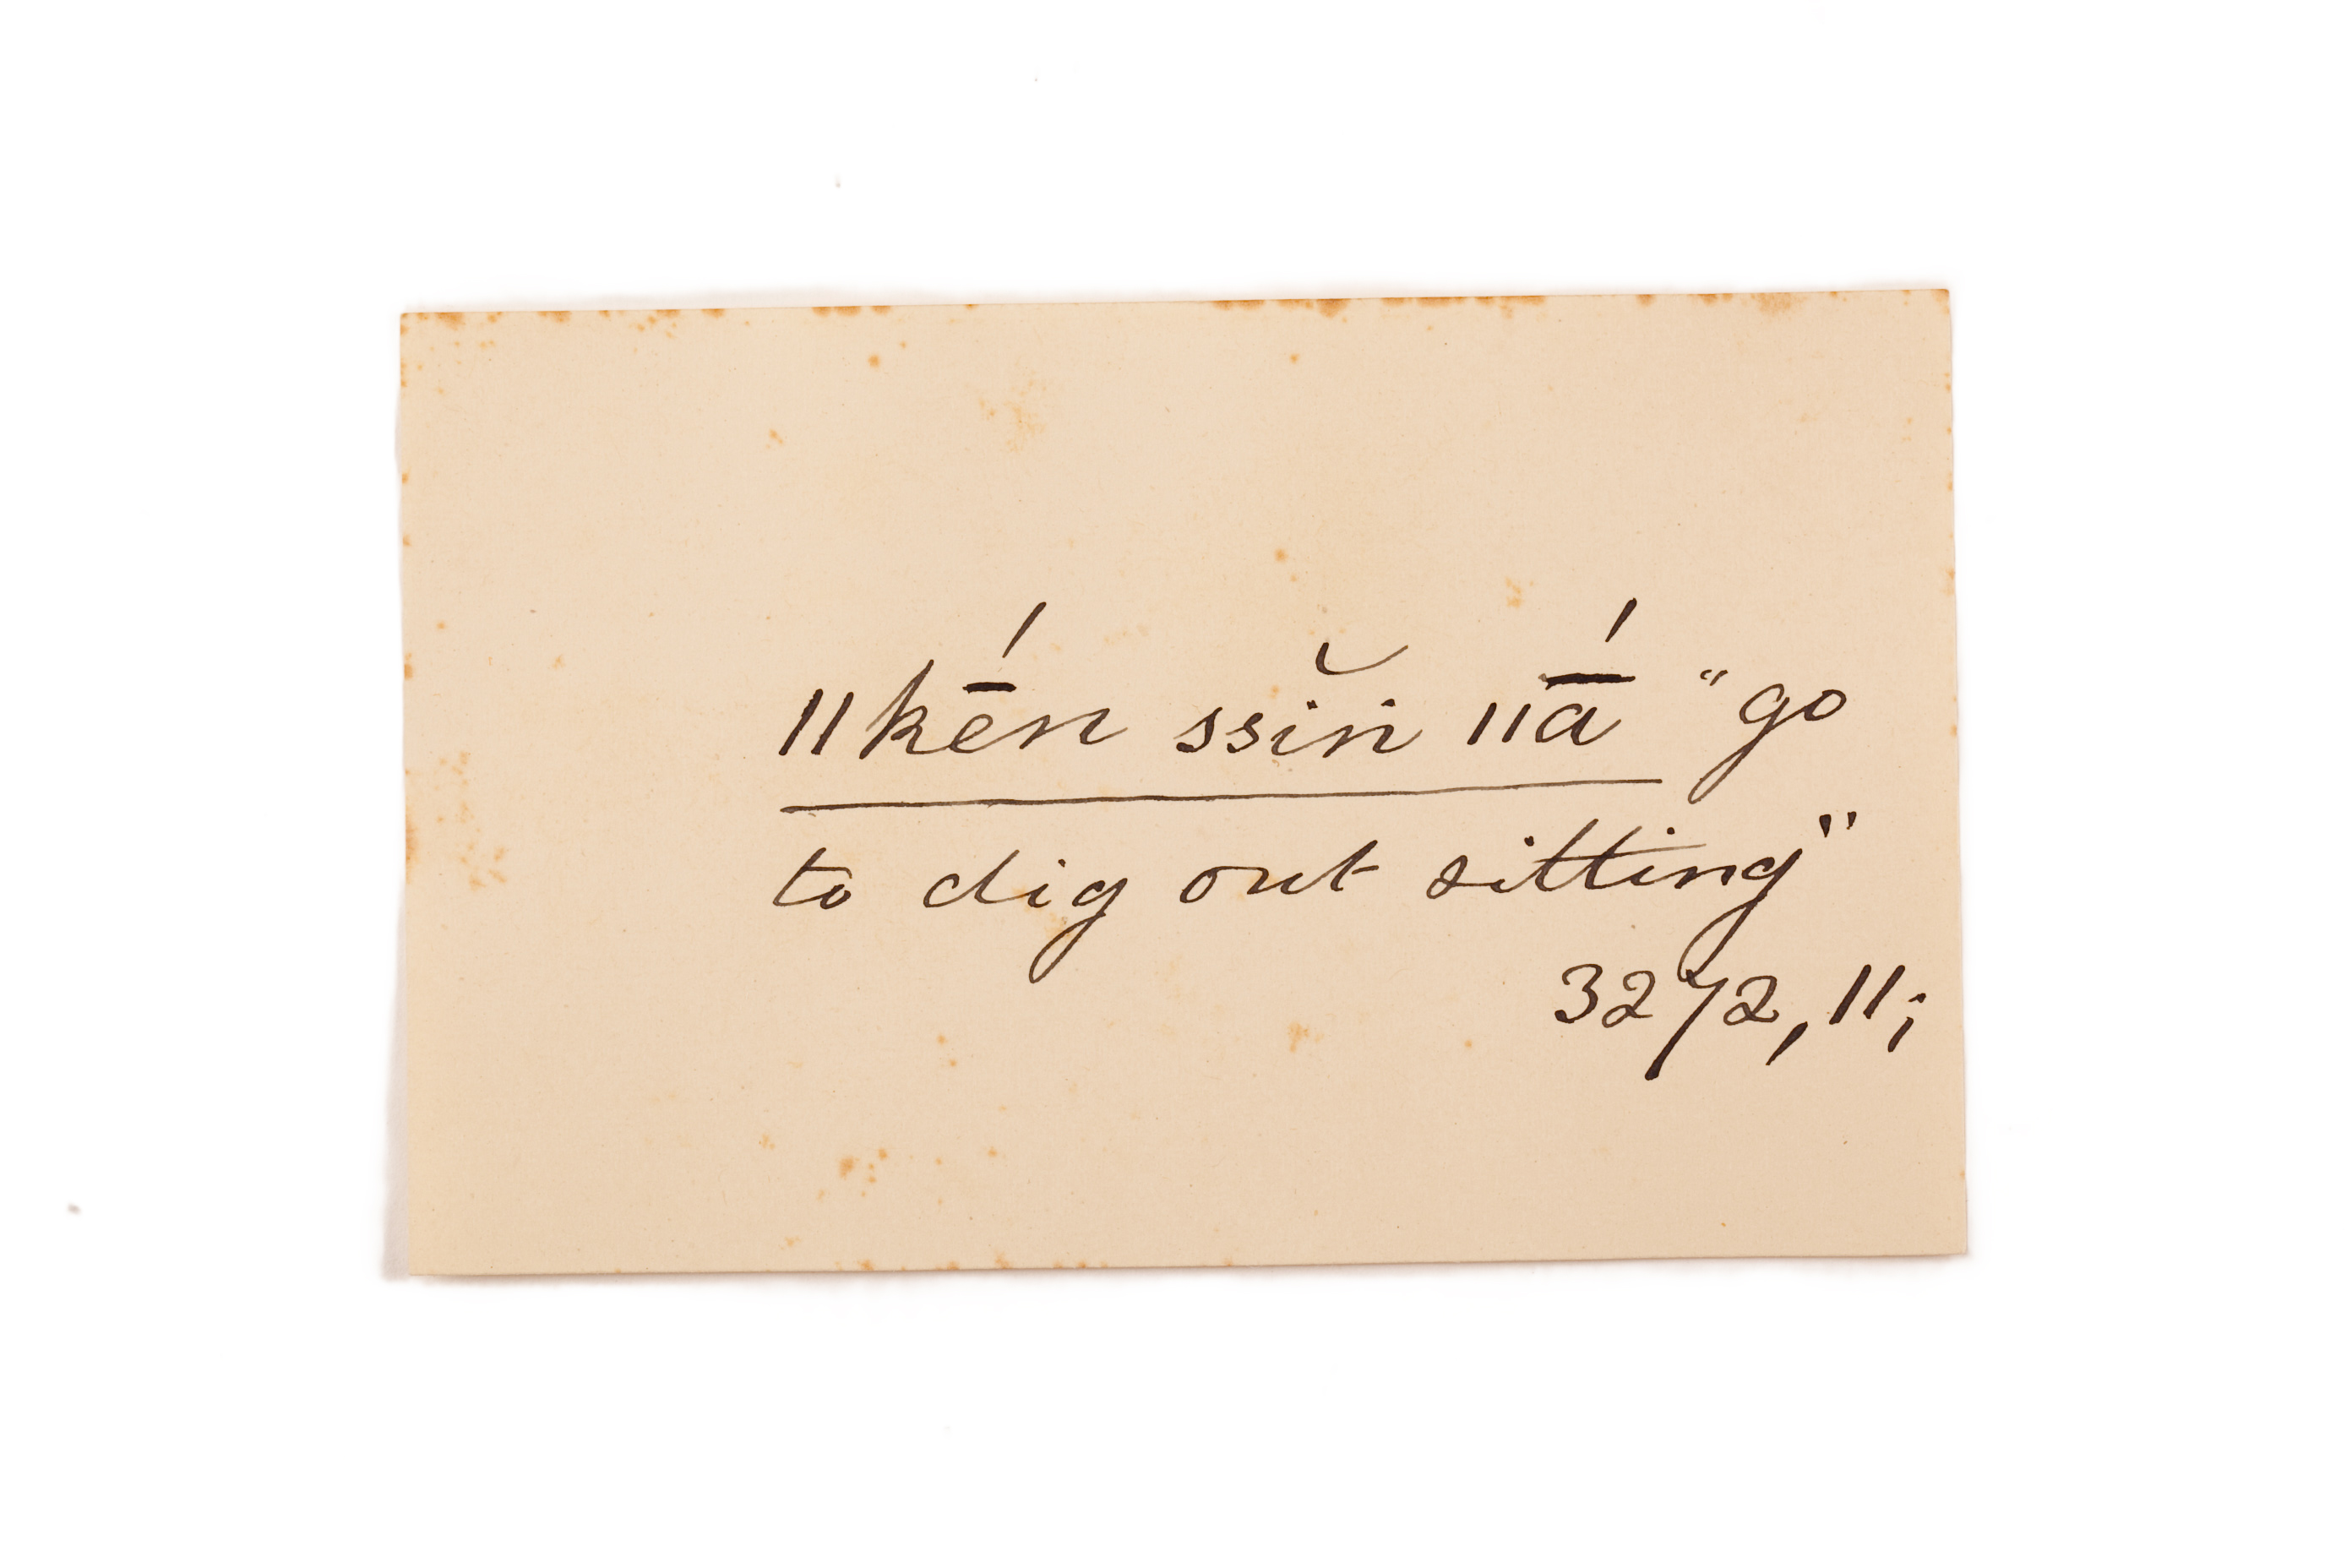 ǁkḗn ssĭṅ ǁā́ "go
to dig out sitting"
3272, 11;